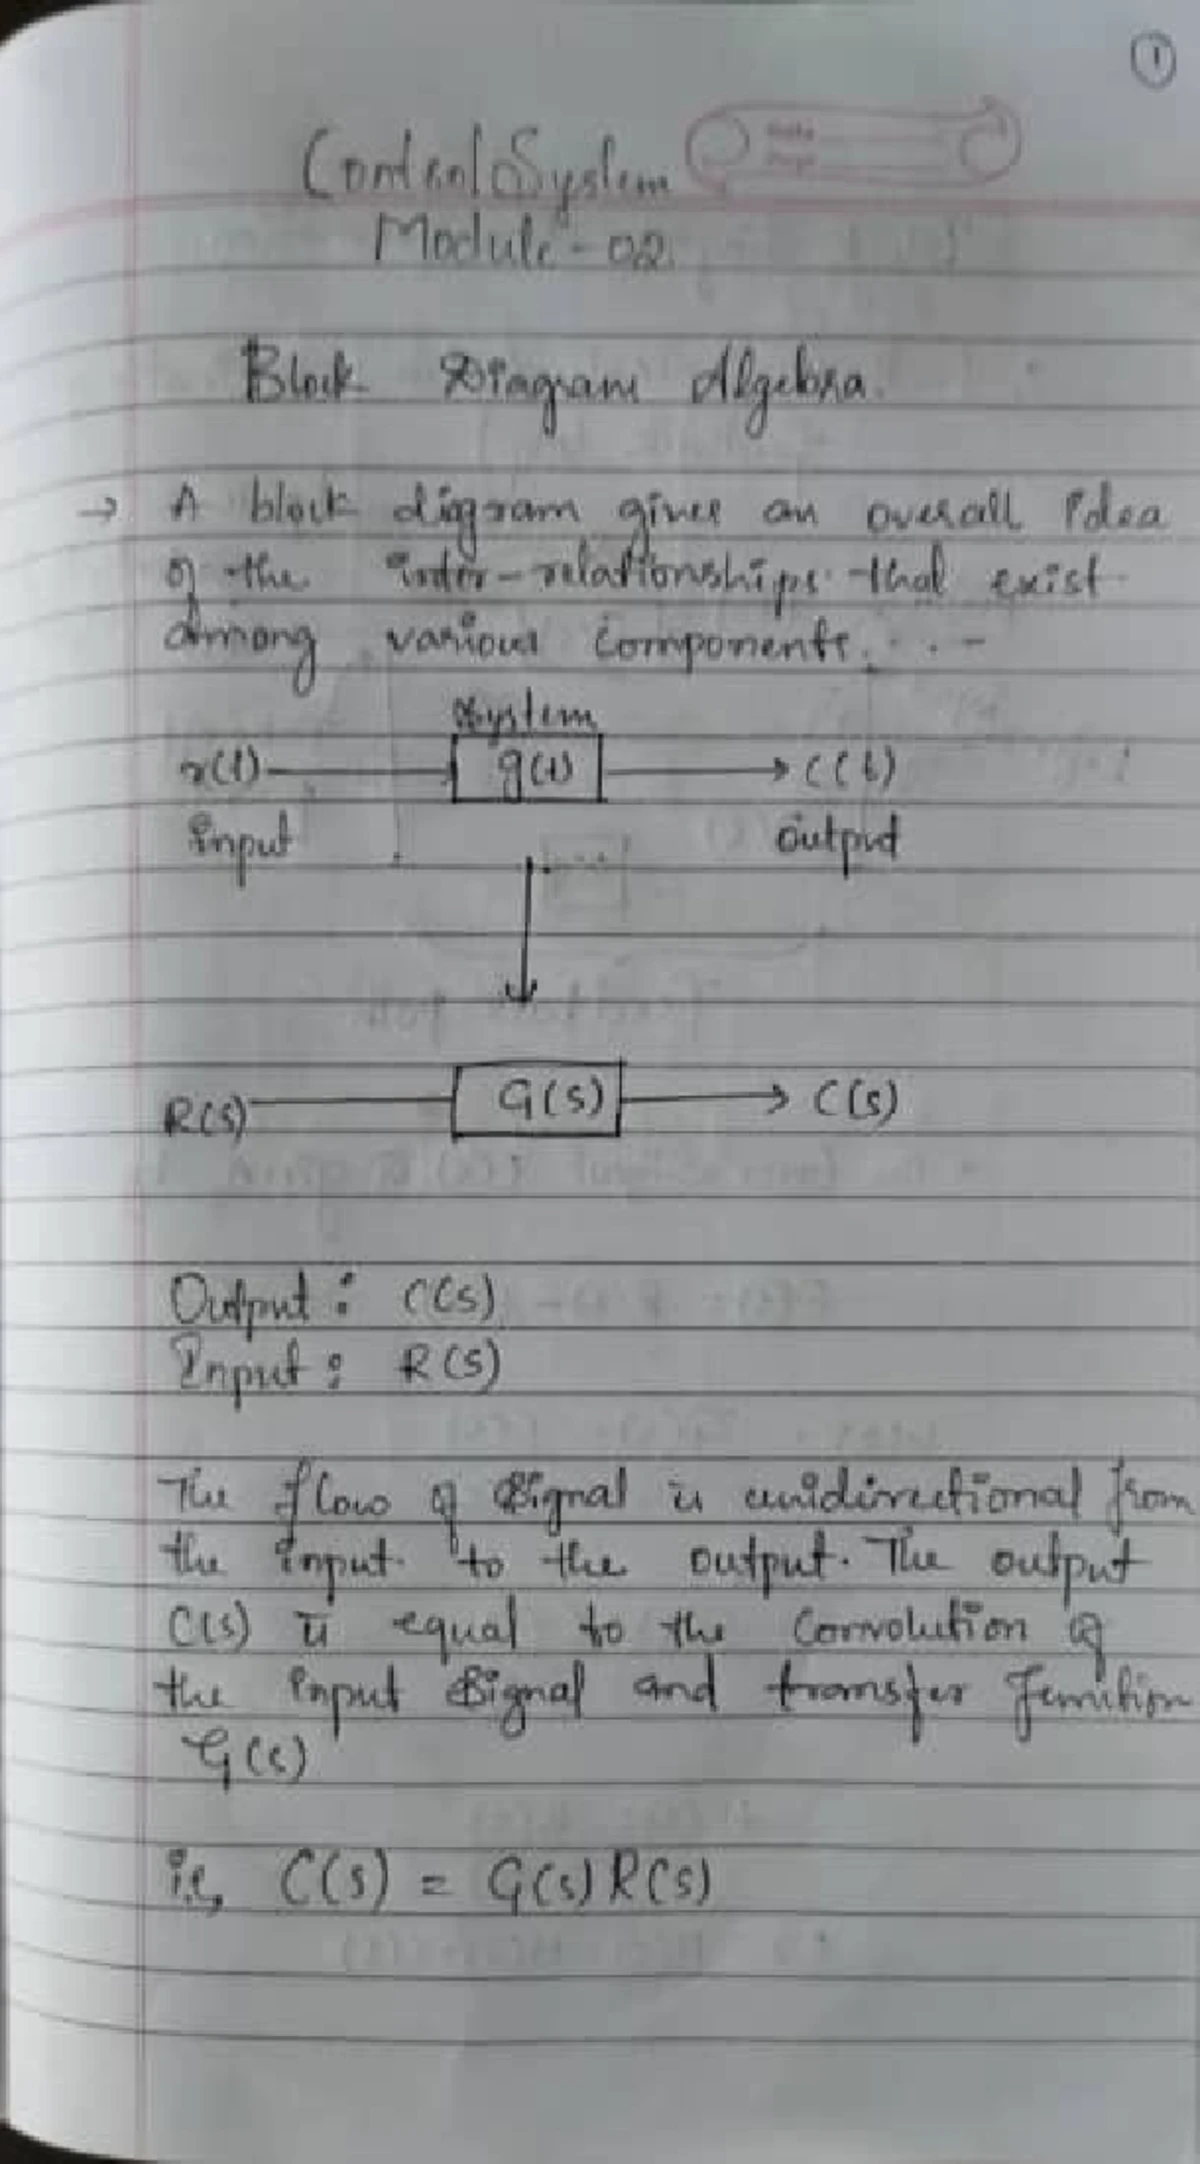 1
Control System
Module-02.
Block Diagram Algebra.
→ A block digram gives an overall idea
of the inter-relationships that exist
among various components.
System
r(t) g(t) C(t)
Input output
R(s) G(s) C(s)
Output : C(s)
Input : R(s)
The flow of signal is unidirectional from
the input to the output. The output
C(s) is equal to the Convolution of
the input signal and transfer function
G(s)
i.e, C(s) = G(s) R(s)